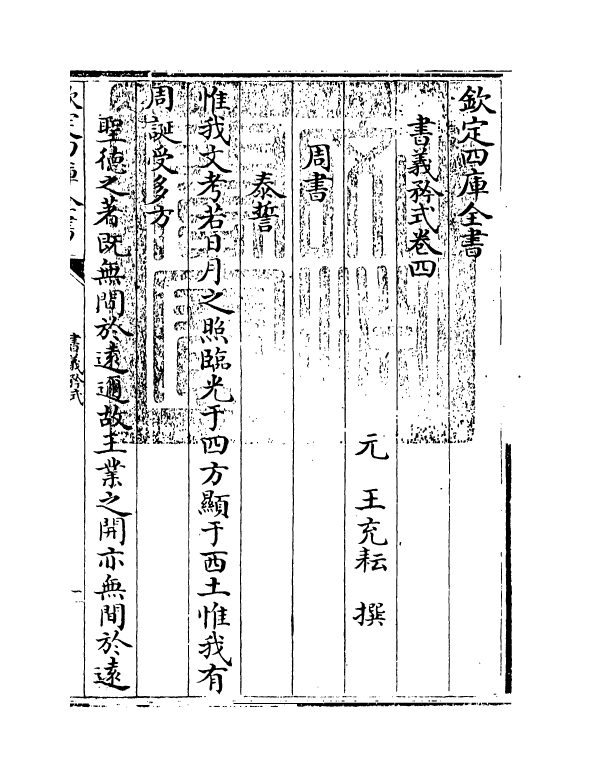 欽定四庫全書
書義矜式卷四
元　王充耘　撰
周書
泰誓
惟我文考若日月之照臨光于四方顯于西土惟我有
周誕受多方
聖德之著既無間於遠邇故王業之開亦無間於遠
欽定四庫全書
書義矜式
一